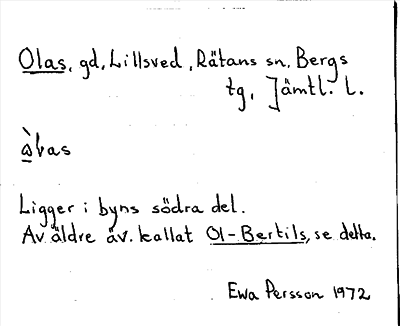 Olas, gd, Lillsved, Rätans sn, Bergs
tg, Jämtl. l.
Ligger i byns södra del.
Av äldre äv. kallat Ol-Bertils, se detta.
Ewa Persson 1972